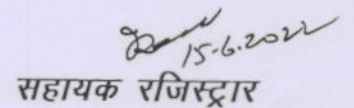 15-6.2022
सहायक रजिस्ट्रार